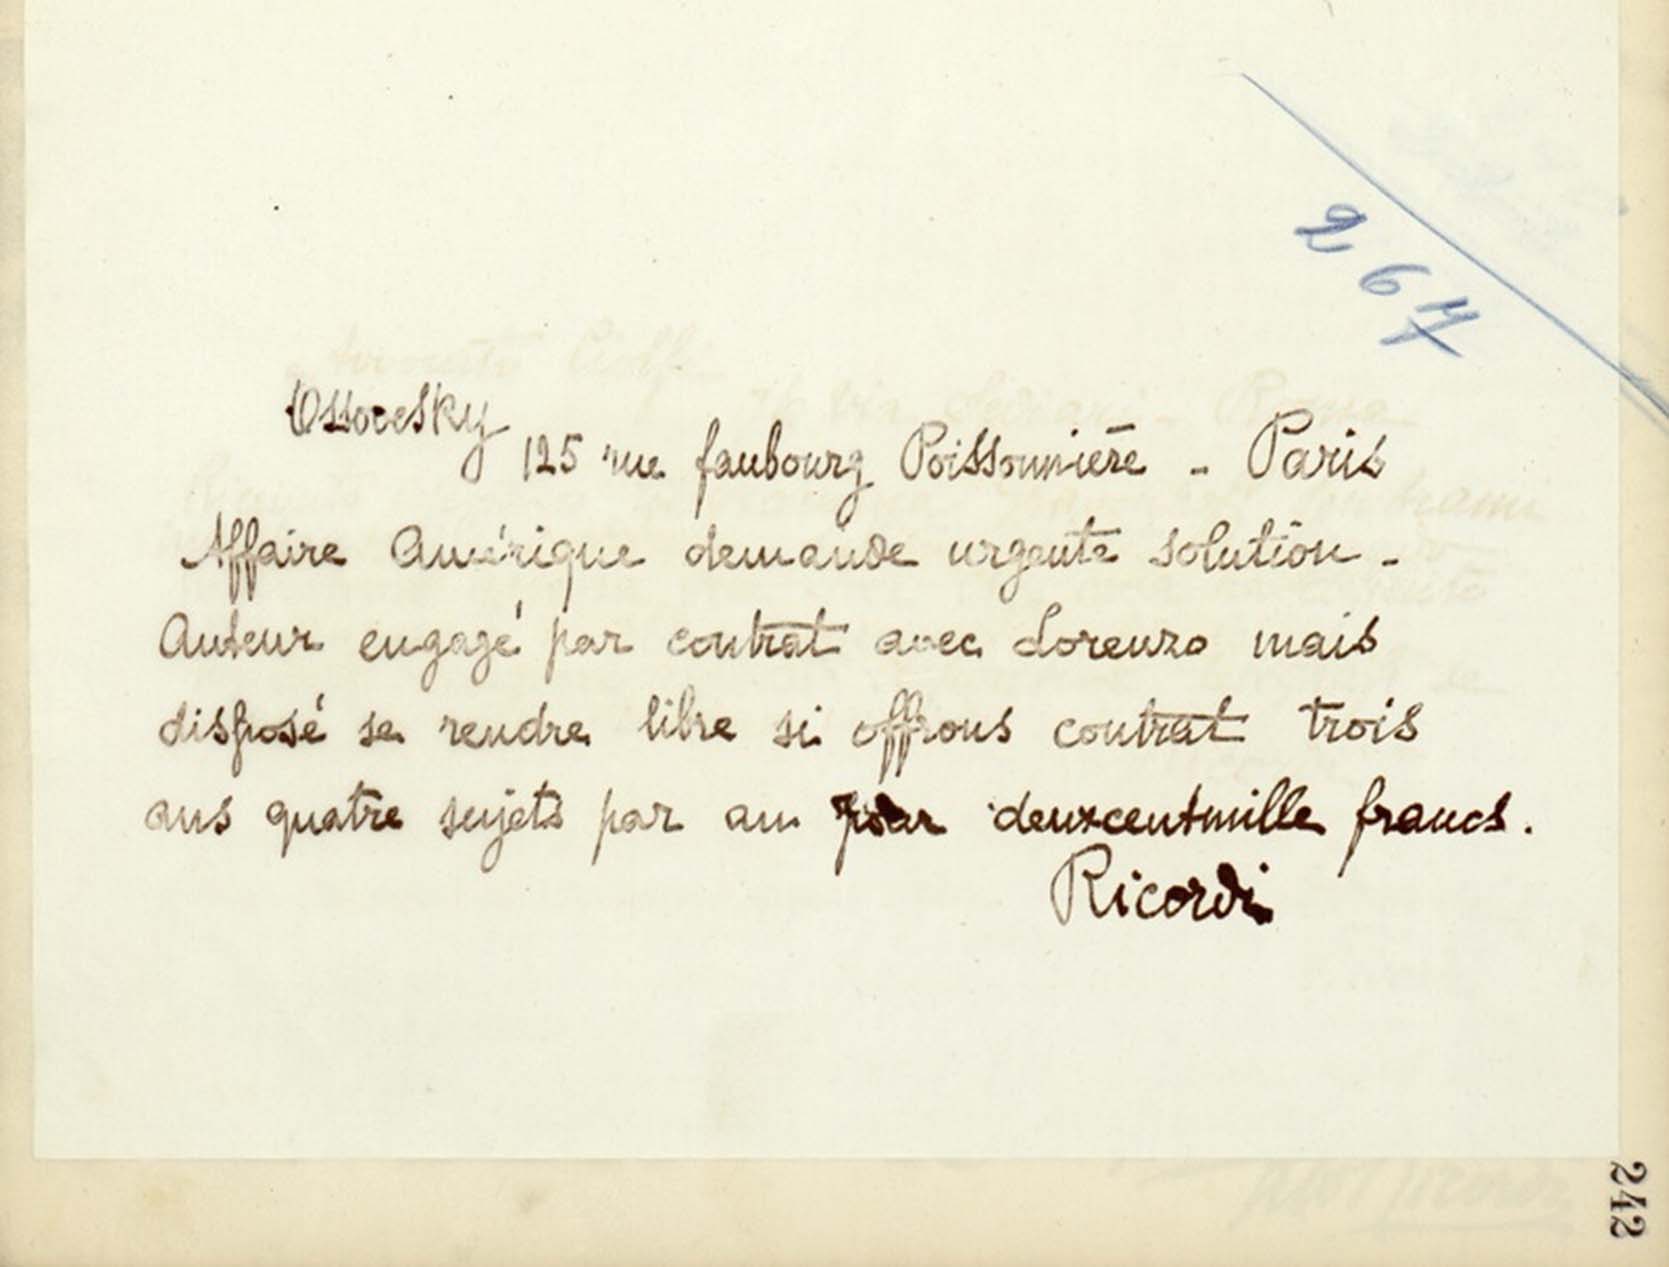 267
Ossovesky
125 rue faubourg Poissonnière - Paris
Affaire Amérique demande urgente solution -
Auteur engagé par contrat avec Lorenzo mais
disposé se rendre libre si offrons contrat trois
ans quatre sujets par an pour deuxcentmille francs.
Ricordi
242